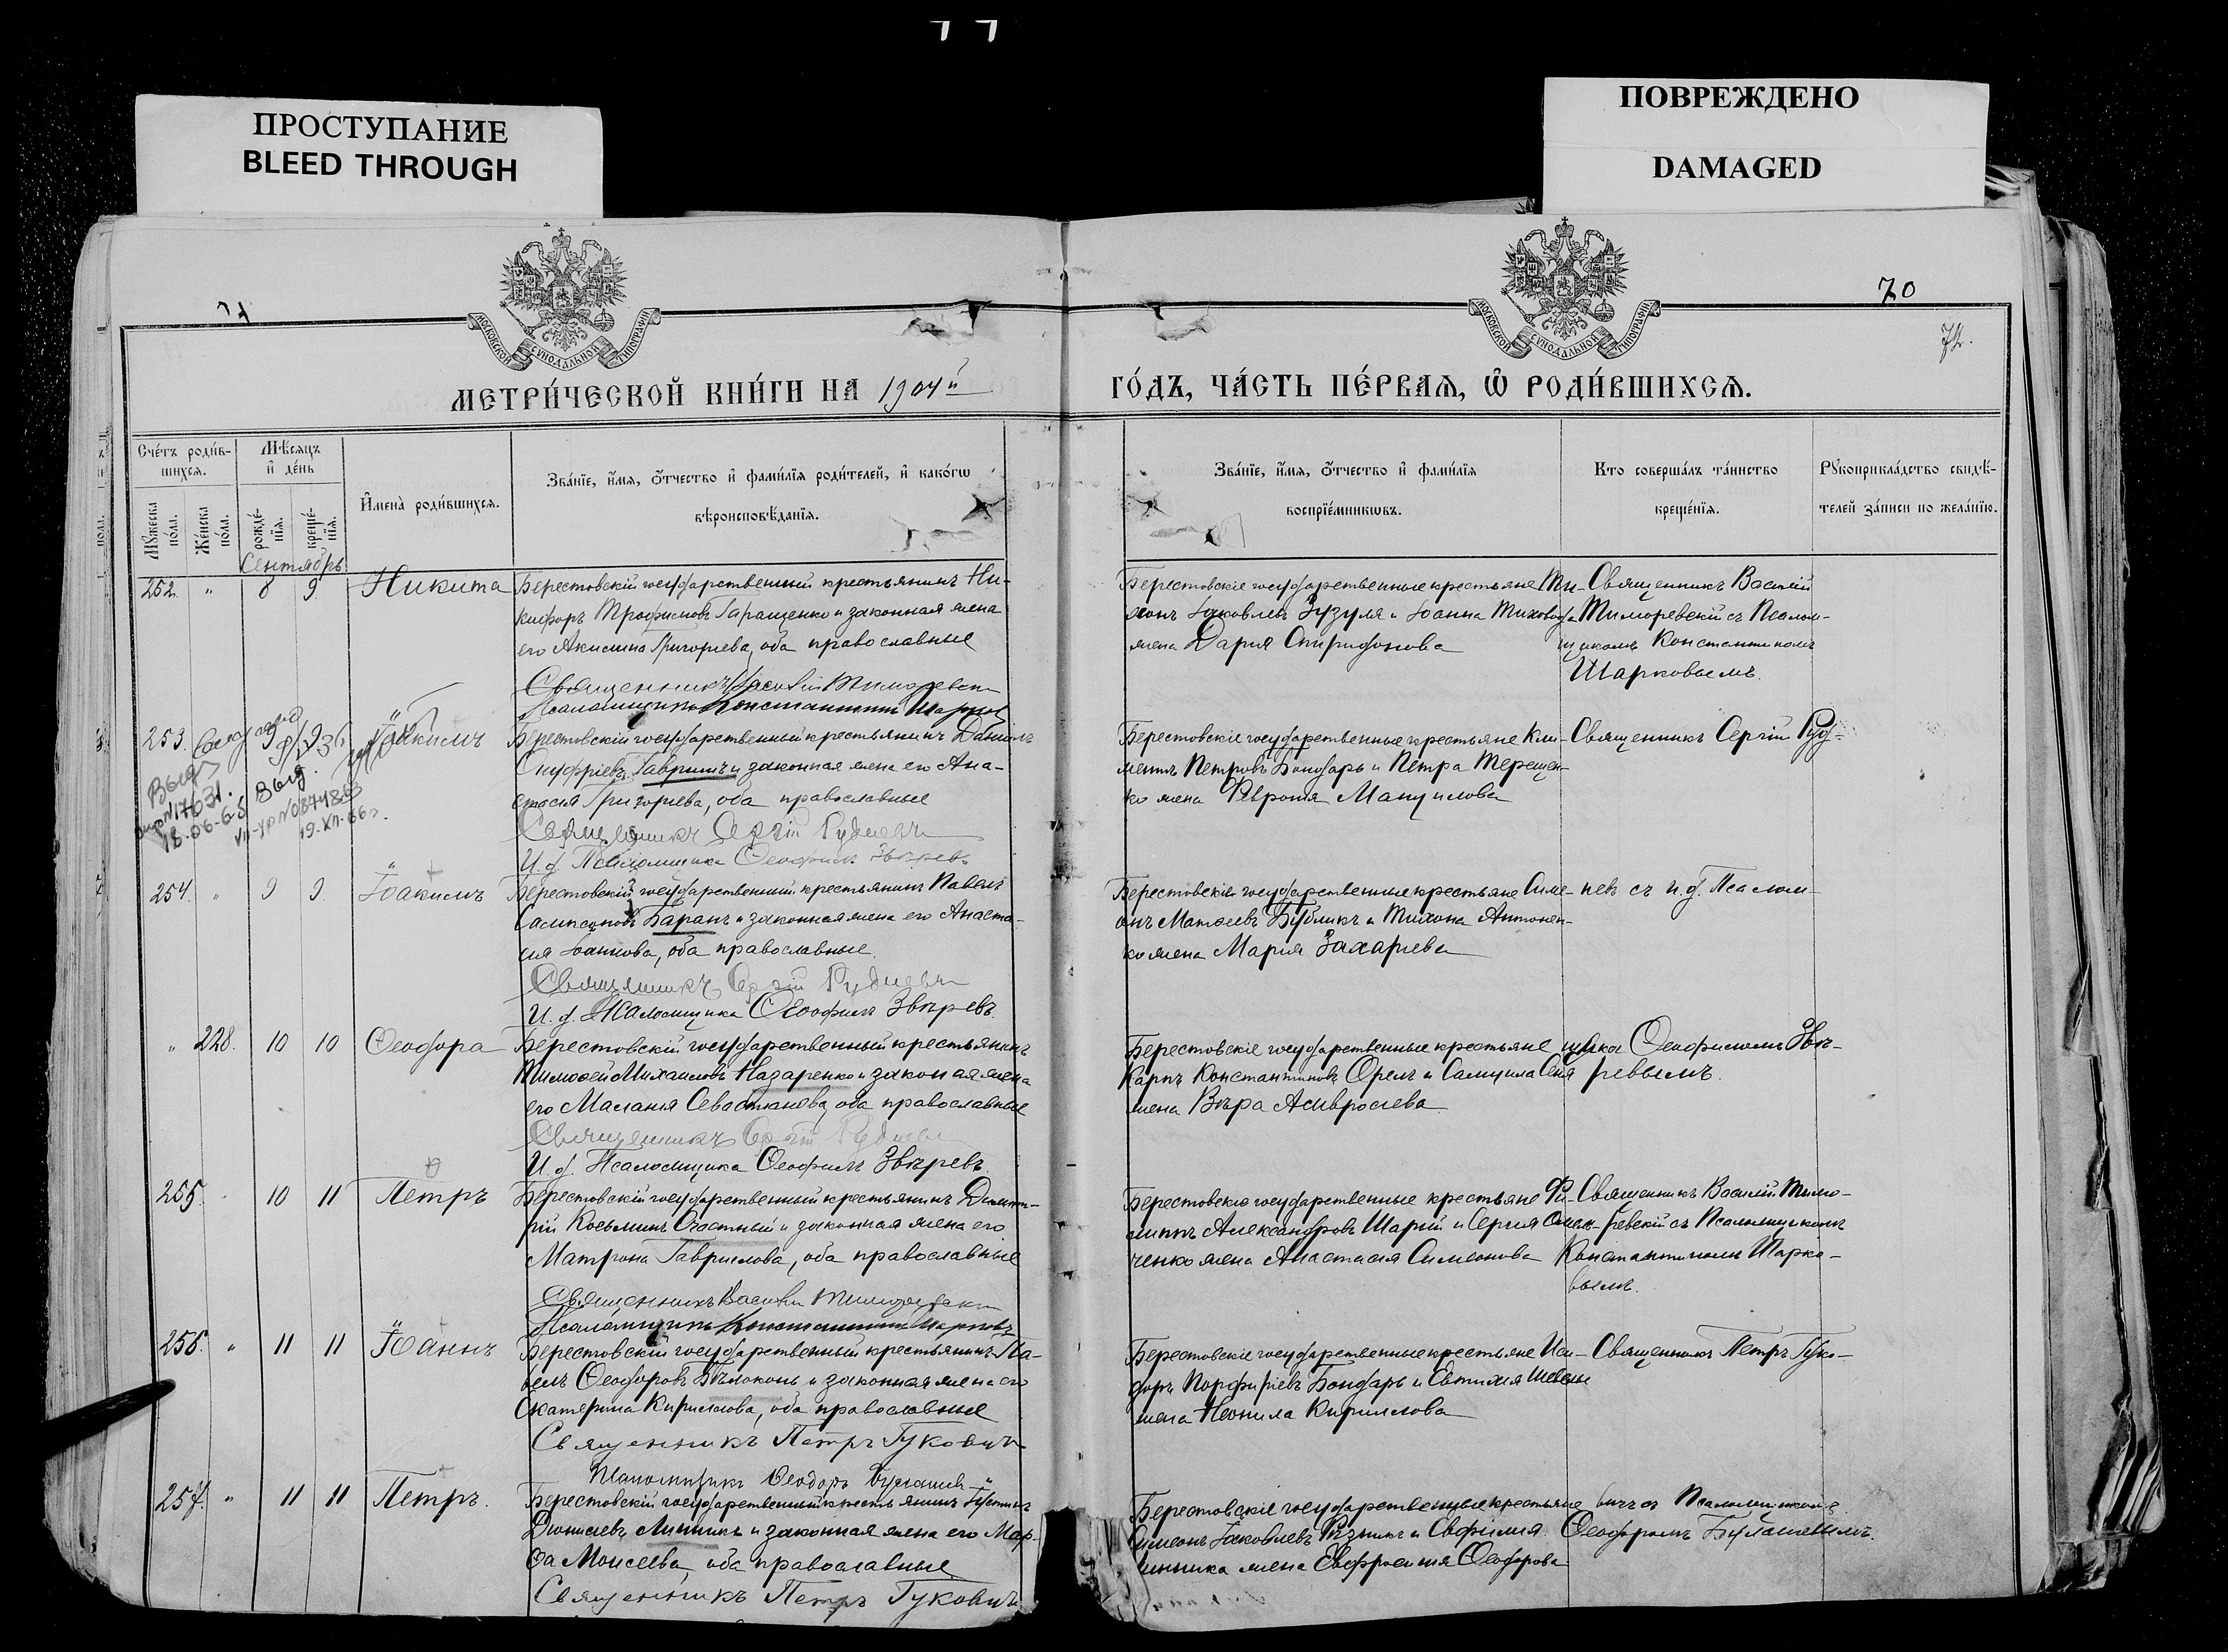 ПРОСТУПАНИЕ
BLEED THROUGH
ПОВРЕЖДЕНО
DAMAGED
МОСКОВСКОЙ СѴНОДАЛЬНОЙ ТИПОГРАФІИ
МОСКОВСКОЙ СѴНОДАЛЬНОЙ ТИПОГРАФІИ
70
72.
МЕТРИ́ЧЕСКОЙ КНИ́ГИ НА 1904й
ГО́ДЪ, ЧА́СТЬ ПЕ́РВАѦ, Ѡ҆ РОДИ́ВШИХСѦ.
Сче́тъ роди́в-
шихся.
Мѣ́сяцъ
и҆ де́нь
Мꙋ́жеска
по́ла.
Же́нска
по́ла.
рожде́-
нїѧ.
креще́-
нїѧ.
И҆мена̀ роди́вшихся.
Зва́нїе, и҆́мѧ, ѻ҆́тчество и҆ фами́лїѧ роди́телей, и҆ како́гѡ
вѣроисповѣ́данїѧ.
Зва́нїе, и҆́мѧ, ѻ҆́тчество и҆ фами́лїѧ
воспрїе́мникѡвъ.
Кто соверша́лъ та́инство
креще́нїѧ.
Рꙋкоприкла́дство свидѣ́-
телей за́писи по жела́нїю.
Сентябрь
252. " 8 9 Никита
Берестовскій государственный крестьянинъ Ни-
кифоръ Трофимовъ Гаращенко и законная жена
его Акилина Григорьева, оба православные
Священникъ Василій Тиморевскій
Псаломщикъ Константинъ Шарковъ
Берестовскіе государственные крестьяне Ти-
монъ Іаковлевъ Зузуля и Іоанна Тиховода
жена Дарія Спиридонова
Священникъ Василій
Тиморевскій съ Псалом-
щикомъ Константиномъ
Шарковымъ.
253. 9 9 Іоакимъ
18-06-65
19-XII-66 г.
Берестовскій государственный крестьянинъ Даніилъ
Онуфріевъ Гавришъ и законная жена его Ана-
стасія Григорьева, оба православные
Священникъ Сергій Рудневъ
И. д. Псаломщика Ѳеофилъ Звѣревъ
Берестовскіе государственные крестьяне Кли-
ментъ Петровъ Бондарь и Петра Терещен-
ко жена Февронія Мануилова
Священникъ Сергій Руд-
254. " 9 9 Іоакимъ
Берестовскій государственный крестьянинъ Павелъ
Сампсоновъ Баранъ и законная жена его Анаста-
сія Іоаннова, оба православные.
Священникъ Сергій Рудневъ
И. д. Псаломщика Ѳеофилъ Звѣревъ
Берестовскіе государственные крестьяне Симе-
онъ Матѳеевъ Бубликъ и Тихона Антонен-
ко жена Марія Захаріева
невъ съ и. д. Псалом-
" 228. 10 10 Ѳеодора
Берестовскій государственный крестьянинъ
Тимоѳей Михаиловъ Назаренко и законная жена
его Маланія Севастіанова, оба православные
Священникъ Сергій Рудневъ
И. д. Псаломщика Ѳеофилъ Звѣревъ.
Берестовскіе государственные крестьяне
Карпъ Константиновъ Орелъ и Самуила
жена Вѣра Амвросіева
щика Ѳеофиломъ Звѣ-
ревымъ.
255. 10 11 Петръ
Берестовскій государственный крестьянинъ Димит-
рій Косьминъ Счастный и законная жена его
Матрона Гавриилова, оба православные
Священникъ Василій Тиморевскій
Псаломщикъ Константинъ Шарковъ
Берестовскіе государственные крестьяне Фи-
липпъ Александровъ Шарій и Сергія Семен-
ченко жена Анастасія Симеонова
Священникъ Василій Тимо-
ревскій съ Псаломщикомъ
Константиномъ Шарко-
вымъ.
256. " 11 11 Іоаннъ
Берестовскій государственный крестьянинъ Па-
велъ Ѳеодоровъ Бѣлоконь и законная жена его
Екатерина Кириллова, оба православные
Священникъ Петръ Гуковичъ
Псаломщикъ Ѳеодоръ Булашевъ
Берестовскіе государственные крестьяне Иси-
доръ Порфиріевъ Бондарь и Евтихія
жена Неонила Кириллова
Священникъ Петръ Гуко-
257. " 11 11 Петръ.
Берестовскій государственный крестьянинъ Іустинъ
Діонисіевъ Линникъ и законная жена его Мар-
ѳа Моисеева, оба православные
Священникъ Петръ Гуковичъ
Берестовскіе государственные крестьяне
Симеонъ Іаковлевъ Рѣзникъ и Евфимія
Линника жена Евфросинія Ѳеодорова
вичъ съ Псаломщикомъ
Ѳеодоромъ Булашевымъ.